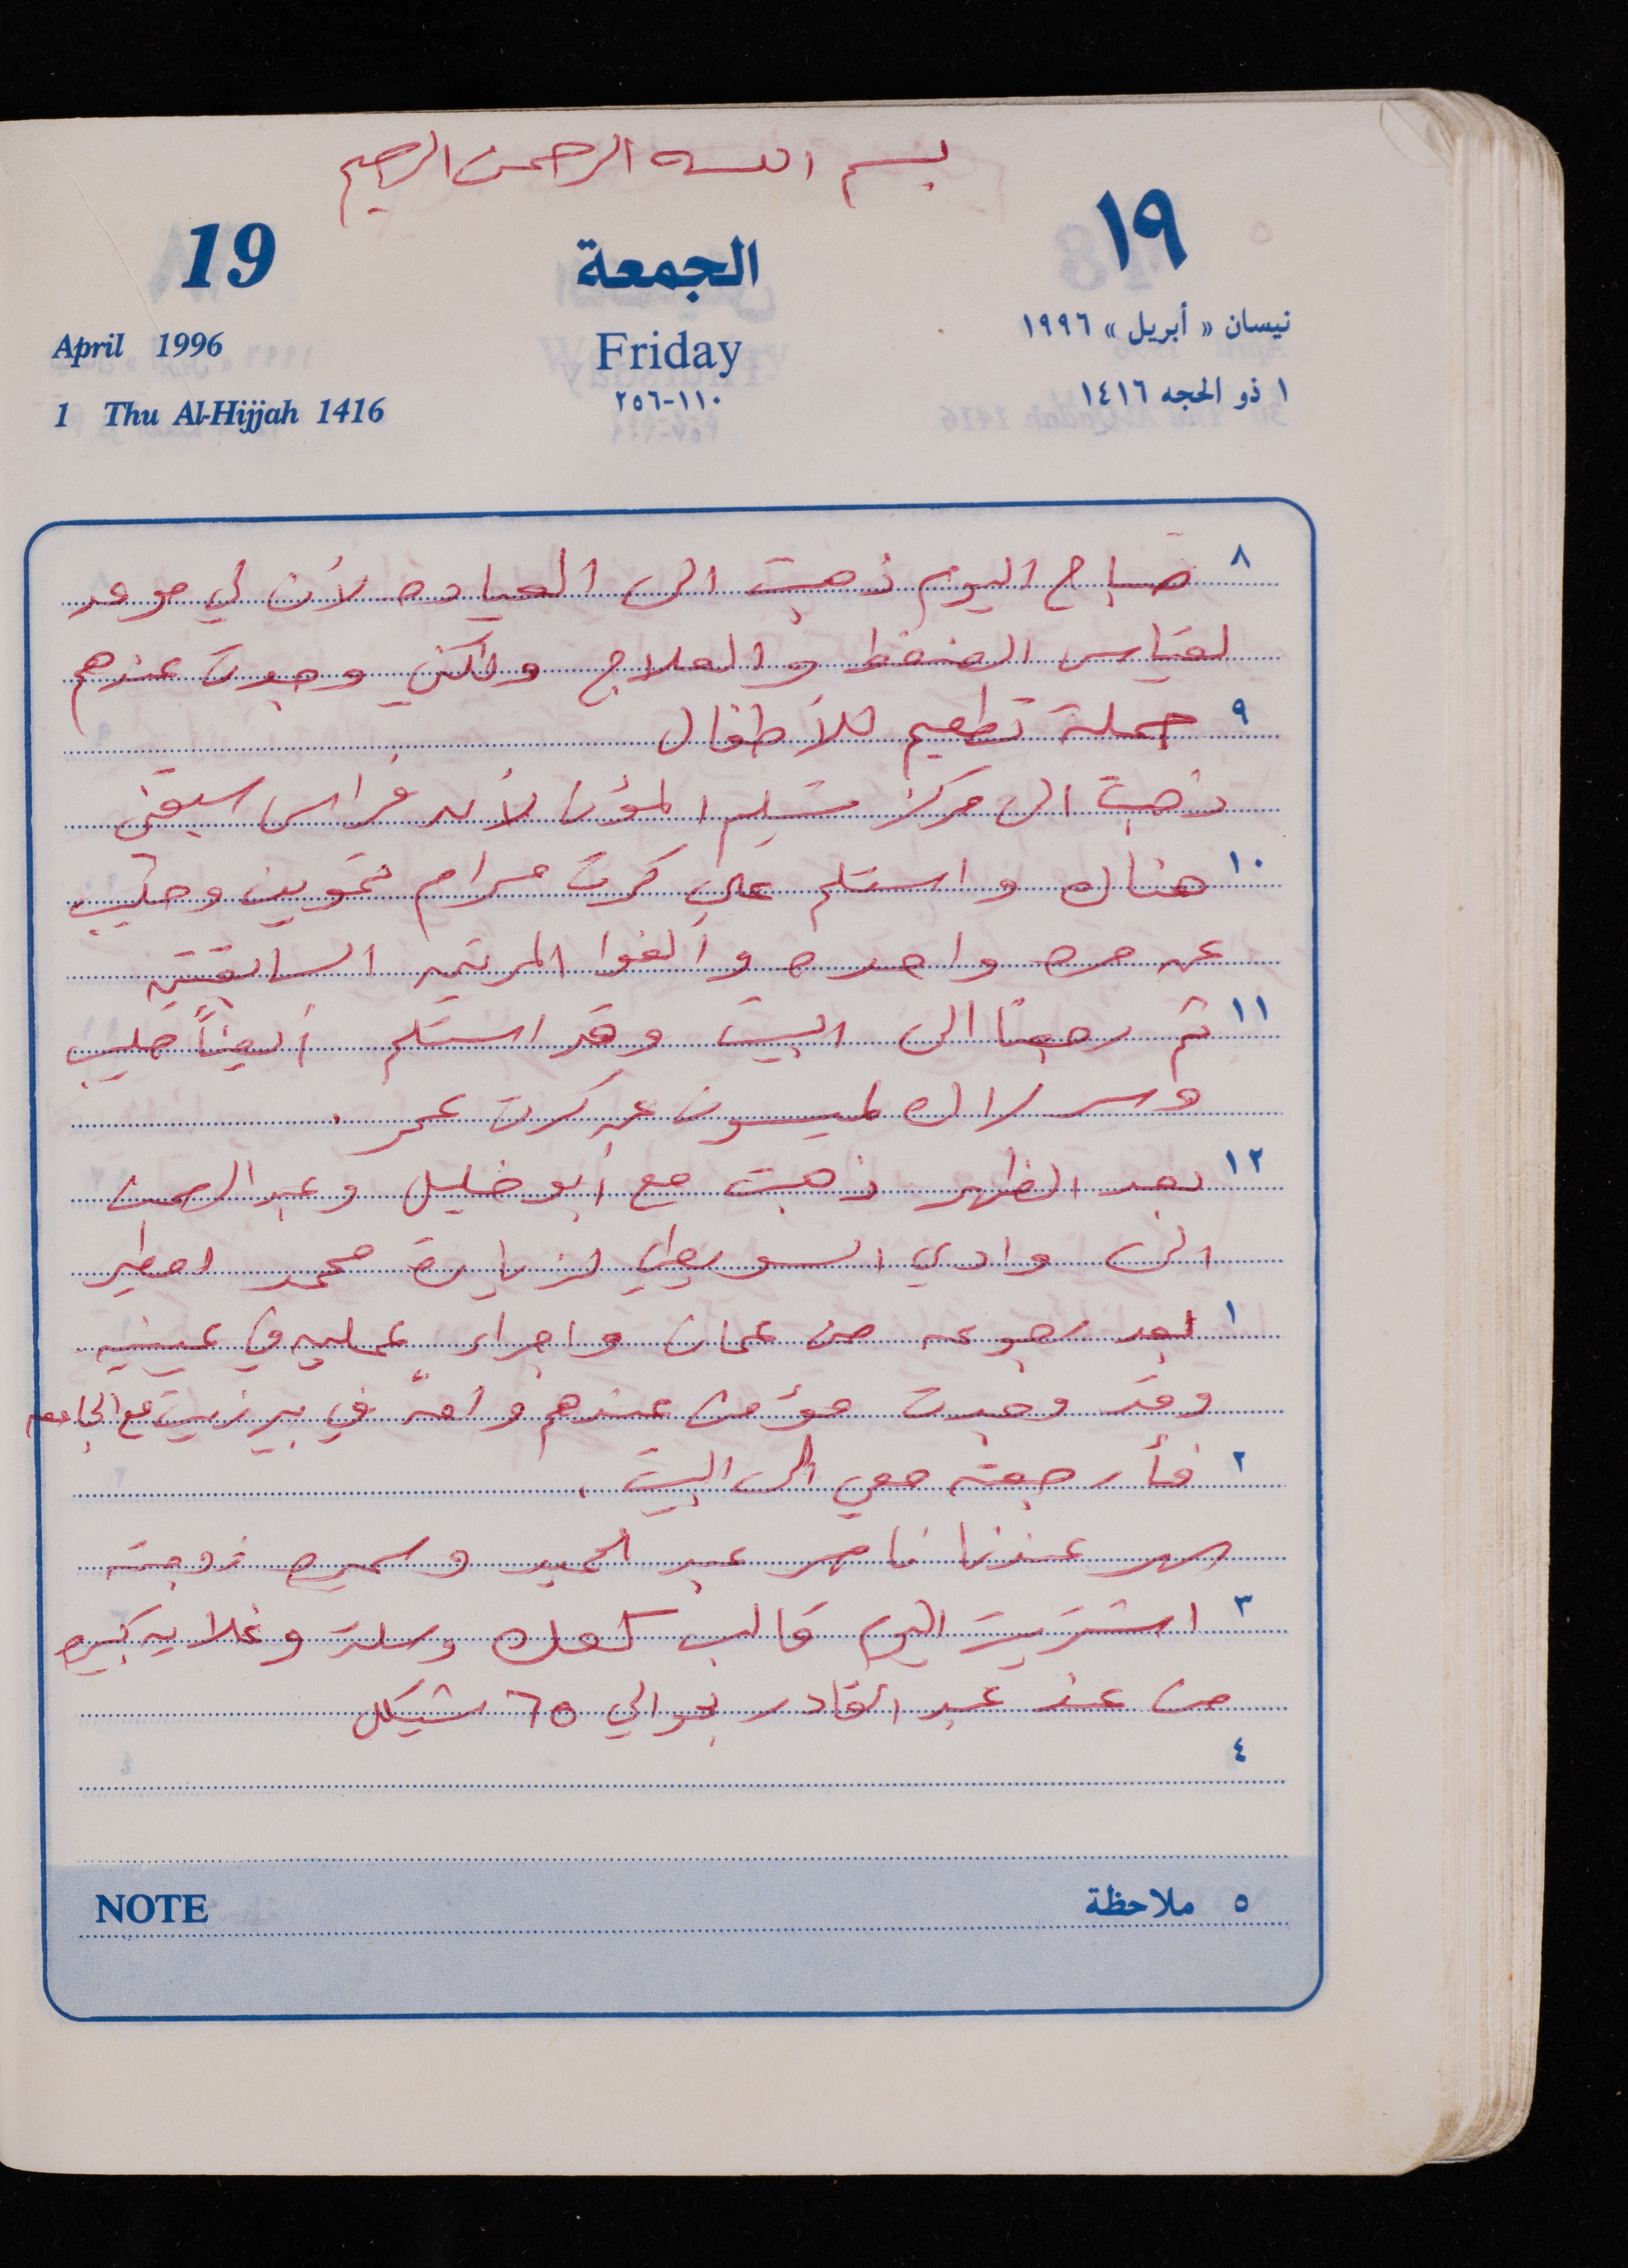 بسم الله الرحمن الرحيم
19
الجمعة
١٩
April 1996
Friday
نيسان « أبريل » ١٩٩٦
1 Thu Al-Hijjah 1416
١١٠-٢٥٦
١ ذو الحجه ١٤١٦
٨ صباح اليوم ذهبت الى العياده لأن لي موعد
لقياس الضغط والعلاج ولكني وجدت عندهم
٩ حملة تطعيم للأطفال
ذهبت الى مركز تسليم المؤن لأن فراس سبقني
١٠ هناك واستلم على كرت مرام تموين وحليب
عن مره واحده وألغوا المرتين السابقتين
١١ ثم رجعنا الى البيت وقد استلم أيضاً حليب
لميسون عن كرت عمر .
١٢ بعد الظهر ذهبت مع أبو خليل وعبد الرحمن
الى وادي السورطي لزيارة محمد امطير
١ بعد رجوعه من عمان واجراء عمليه في عينيه
وقد وجدت مؤمن عندهم وامه في بيرزيت مع الجامعه
٢ فأرجعته معي الى البيت .
سهر عندنا ناصر عبد الحميد وسميره زوجته
٣ اشتريت اليوم قالب كعك وسلة وغلايه كبيره
من عند عبد القادر بحوالي ٦٥ شيكل
٤
NOTE
٥ ملاحظة